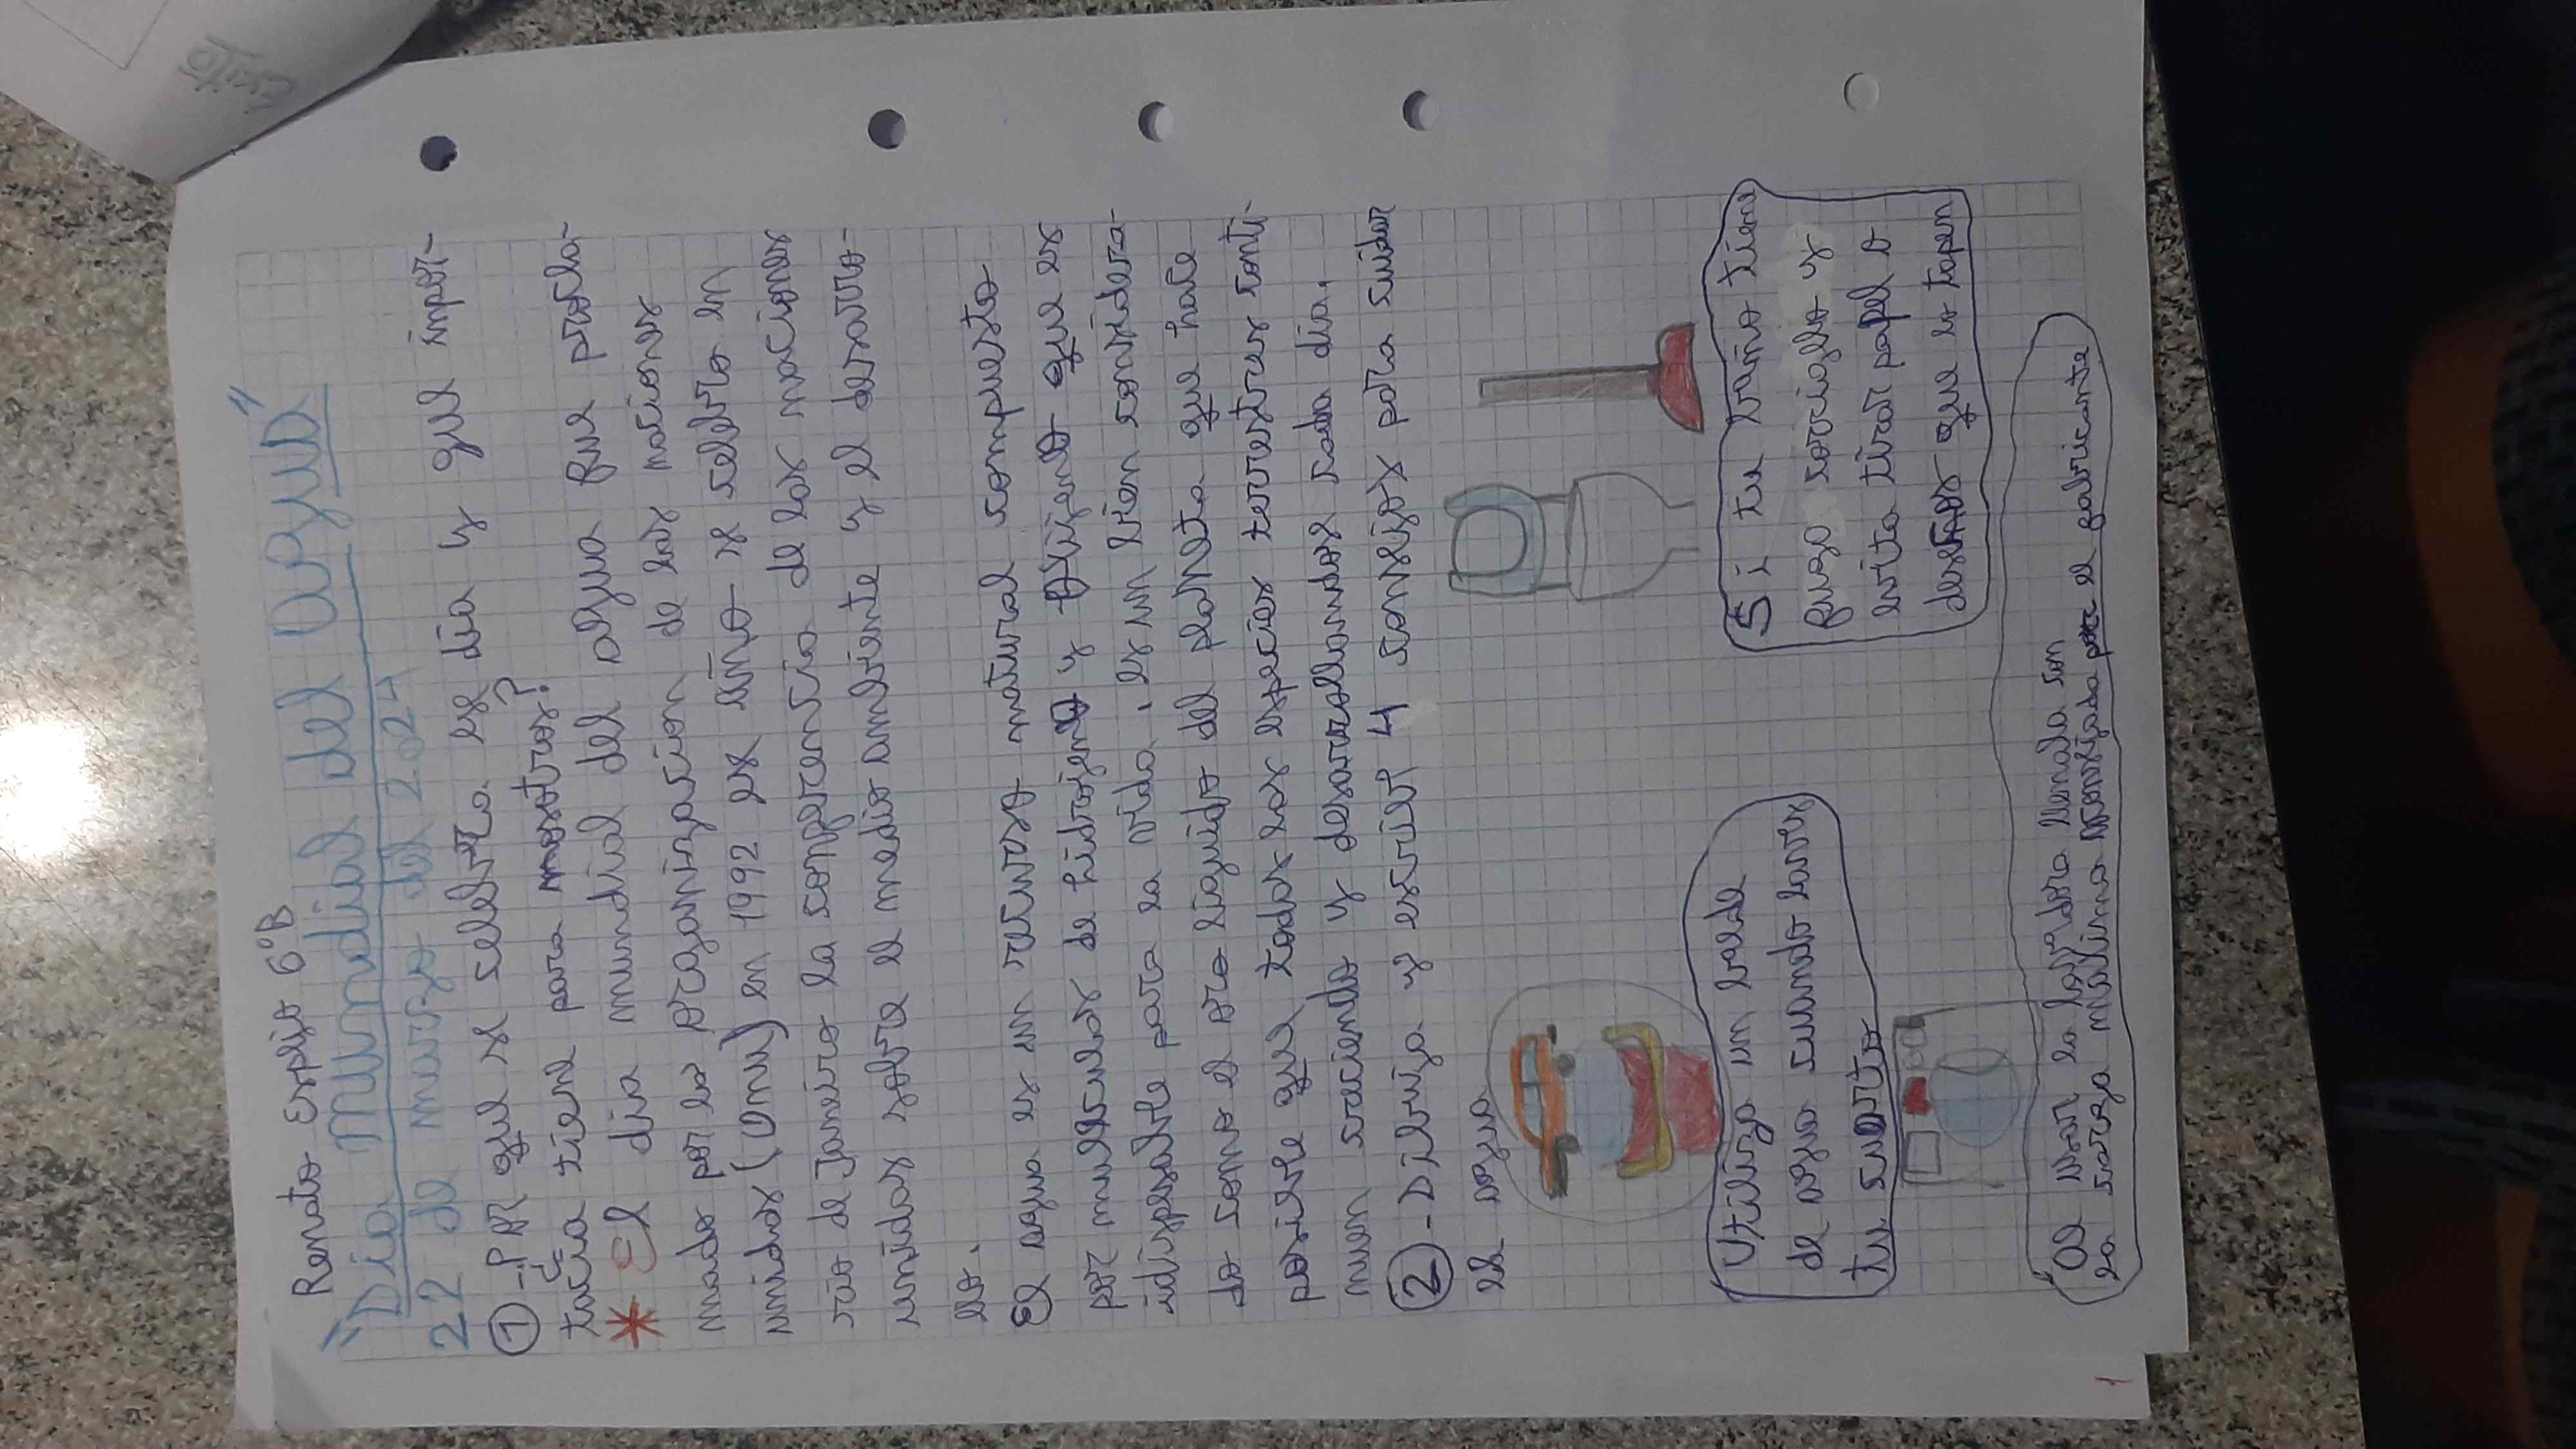 Renato Espejo 6°B
"Dia mundial del agua"
22 de marzo del 2.024
① - ¿Por que se celebra es dia y que impor-
tacia tiene para nosotros?
* El dia mundial del agua fue procla-
mado por la organizacion de las naciones
unidas (Onu) en 1992 es lino se celebro en
rio de Janeiro la conferencia de las naciones
unidas sobre el medio ambiente y el desarro-
llo.
El agua es un recurso natural compuesto
por mulesculas de hidrojeno y oxijeno que es
idispesable para la vida, es un bien considera-
do como el oro liquido del planeta que hace
posible que todas las especies terrestres conti-
nuen creciendo y desarrollandose cada dia.
② - Dibuja y escribe 4 consejos para cuidar
el agua
Utiliza un balde
de agua cuando laves
tu cuarto
Si tu baño tiene
fuga corrigelo y
evita tirar papel o
desechos que lo tapen
Al usar la lavadora llenala con
la carga maxima aconsejada por el fabricante
Exito
1